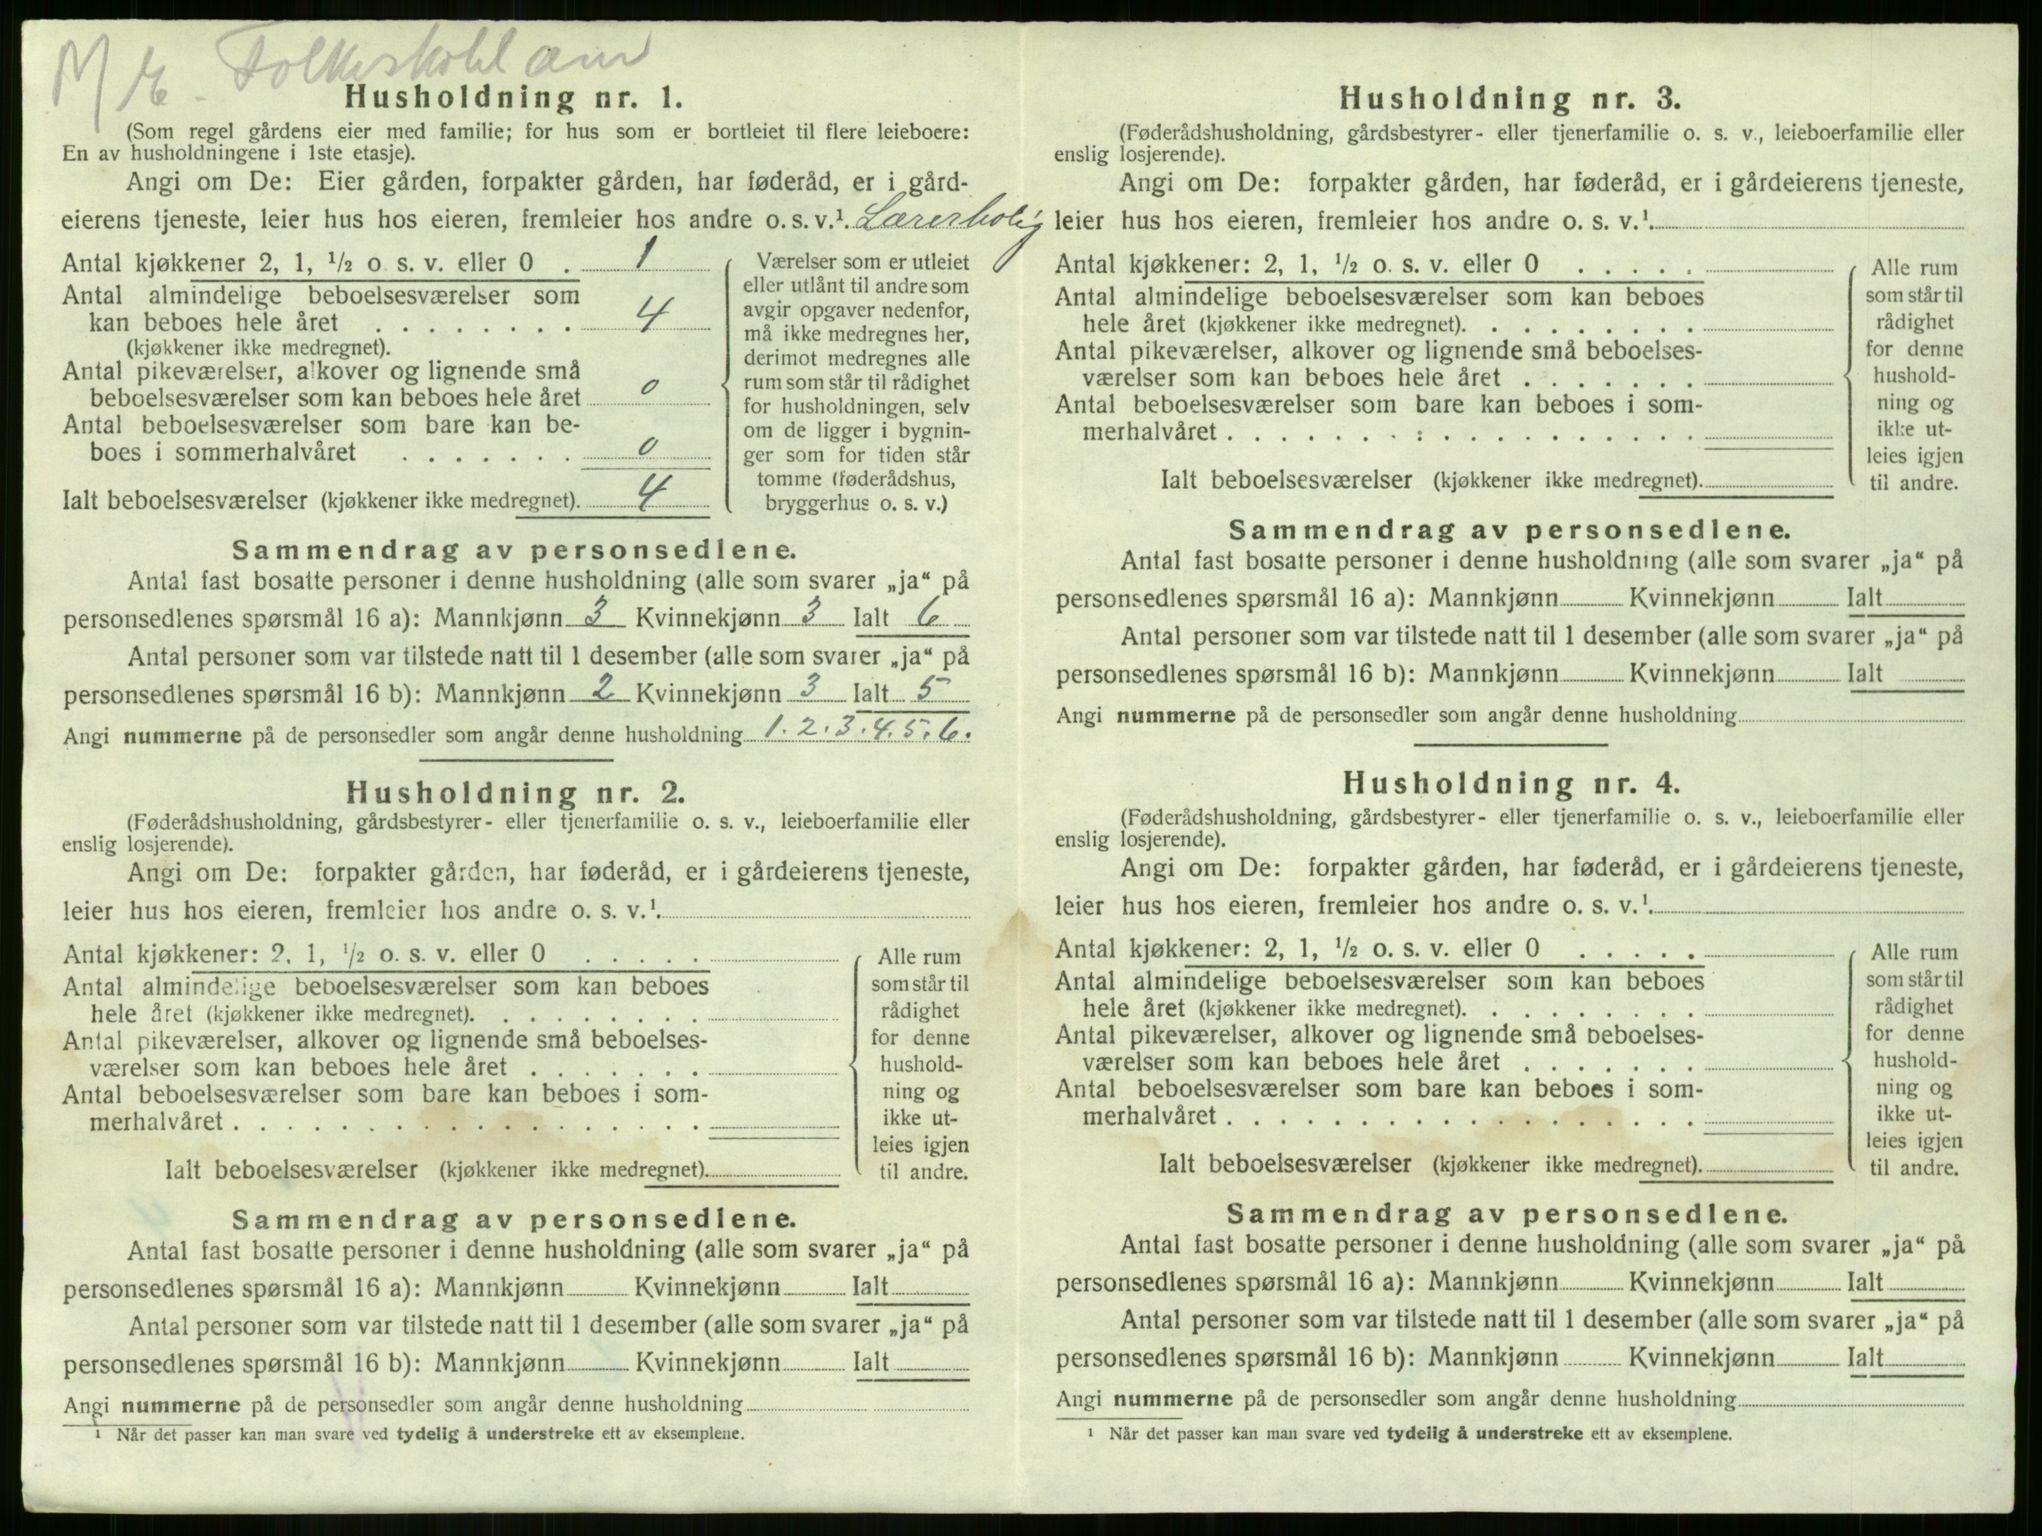 Husholdning nr. 1.
(Som regel gårdens eier med familie; for hus som er bortleiet til flere leieboere:
En av husholdningene i 1ste etasje).
Angi om De: Eier gården, forpakter gården, har føderåd, er i gård-
eierens tjeneste, leier hus hos eieren, fremleier hos andre o. s. v.¹. Lærerbolig
Antal kjøkkener 2, 1, ½ o s. v. eller 0 . 1
Antal almindelige beboelsesværelser som
kan beboes hele året . . . . . . . . 4
(kjøkkener ikke medregnet).
Antal pikeværelser, alkover og lignende små
beboelsesværelser som kan beboes hele året 0
Antal beboelsesværelser som bare kan be-
boes i sommerhalvåret . . . . . . . 0
Ialt beboelsesværelser (kjøkkener ikke medregnet). 4
Værelser som er utleiet
eller utlånt til andre som
avgir opgaver nedenfor,
må ikke medregnes her,
derimot medregnes alle
rum som står til rådighet
for husholdningen, selv
om de ligger i bygnin-
ger som for tiden står
tomme (føderådshus,
bryggerhus o. s. v.)
Sammendrag av personsedlene.
Antal fast bosatte personer i denne husholdning (alle som svarer „ja“ på
personsedlenes spørsmål 16 a): Mannkjønn 3 Kvinnekjønn 3 Ialt 6
Antal personer som var tilstede natt til 1 desember (alle som svarer „ja“ på
personsedlenes spørsmål 16 b): Mannkjønn 2 Kvinnekjønn 3 Ialt 5
Angi nummerne på de personsedler som angår denne husholdning 1. 2. 3. 4. 5. 6.
Husholdning nr. 2.
(Føderådshusholdning, gårdsbestyrer- eller tjenerfamilie o. s. v., leieboerfamilie eller
enslig losjerende).
Angi om De: forpakter gården, har føderåd, er i gårdeierens tjeneste,
leier hus hos eieren, fremleier hos andre o. s. v.¹.
Antal kjøkkener: 2, 1, ½ o. s. v. eller 0 . . . . .
Antal almindelige beboelsesværelser som kan beboes
hele året (kjøkkener ikke medregnet). . . . . . . . .
Antal pikeværelser, alkover og lignende små beboelses-
værelser som kan beboes hele året . . . . . . .
Antal beboelsesværelser som bare kan beboes i som-
merhalvåret . . . . . . . . . . . . . . . . . .
Ialt beboelsesværelser (kjøkkener ikke medregnet).
Alle rum
som står til
rådighet
for denne
hushold-
ning og
ikke ut-
leies igjen
til andre.
Sammendrag av personsedlene.
Antal fast bosatte personer i denne husholdning (alle som svarer „ja“ på
personsedlenes spørsmål 16 a): Mannkjønn Kvinnekjønn Ialt
Antal personer som var tilstede natt til 1 desember (alle som svarer „ja“ på
personsedlenes spørsmål 16 b): Mannkjønn Kvinnekjønn Ialt
Angi nummerne på de personsedler som angår denne husholdning
¹ Når det passer kan man svare ved tydelig å understreke ett av eksemplene.
Husholdning nr. 3.
(Føderådshusholdning, gårdsbestyrer- eller tjenerfamilie o. s. v., leieboerfamilie eller
enslig losjerende).
Angi om De: forpakter gården, har føderåd, er i gårdeierens tjeneste,
leier hus hos eieren, fremleier hos andre o. s. v.¹.
Antal kjøkkener: 2, 1, ½ o. s. v. eller 0 . . . . .
Antal almindelige beboelsesværelser som kan beboes
hele året (kjøkkener ikke medregnet). . . . . . . . .
Antal pikeværelser, alkover og lignende små beboelses-
værelser som kan beboes hele året . . . . . . .
Antal beboelsesværelser som bare kan beboes i som-
merhalvåret . . . . . . . : . . . . . . . . . .
Ialt beboelsesværelser (kjøkkener ikke medregnet).
Alle rum
som står til
rådighet
for denne
hushold-
ning og
ikke ut-
leies igjen
til andre.
Sammendrag av personsedlene.
Antal fast bosatte personer i denne husholdning (alle som svarer „ja“ på
personsedlenes spørsmål 16 a): Mannkjønn Kvinnekjønn Ialt
Antal personer som var tilstede natt til 1 desember (alle som svarer „ja“ på
personsedlenes spørsmål 16 b): Mannkjønn Kvinnekjønn Ialt
Angi nummerne på de personsedler som angår denne husholdning
Husholdning nr. 4.
(Føderådshusholdning, gårdsbestyrer- eller tjenerfamilie o. s. v., leieboerfamilie eller
enslig losjerende).
Angi om De: forpakter gården, har føderåd, er i gårdeierens tjeneste,
leier hus hos eieren, fremleier hos andre o. s. v.¹.
Antal kjøkkener: 2, 1, ½ o. s. v. eller 0 . . . . .
Antal almindelige beboelsesværelser som kan beboes
hele året (kjøkkener ikke medregnet). . . . . . . . .
Antal pikeværelser, alkover og lignende små beboelses-
værelser som kan beboes hele året . . . . . . .
Antal beboelsesværelser som bare kan beboes i som-
merhalvåret . . . . . . . . . . . . . . . . . .
Ialt beboelsesværelser (kjøkkener ikke medregnet).
Alle rum
som står til
rådighet
for denne
hushold-
ning og
ikke ut-
leies igjen
til andre.
Sammendrag av personsedlene.
Antal fast bosatte personer i denne husholdning (alle som svarer „ja“ på
personsedlenes spørsmål 16 a): Mannkjønn Kvinnekjønn Ialt
Antal personer som var tilstede natt til 1 desember (alle som svarer „ja“ på
personsedlenes spørsmål 16 b): Mannkjønn Kvinnekjønn Ialt
Angi nummerne på de personsedler som angår denne husholdning
¹ Når det passer kan man svare ved tydelig å understreke ett av eksemplene.